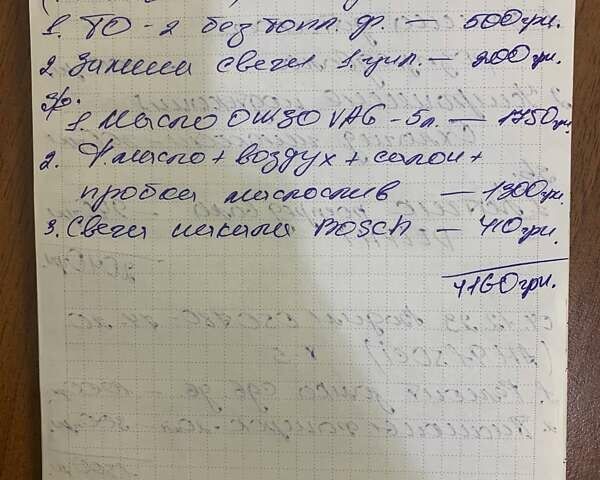 1. ТО - 2 без топл. ф. — 500грн.
2. Замена свечи 1 цил. — 200грн.
Зр.
1. Масло 0W30 VAG - 5л. — 1750грн.
2. Ф масло + воздух + салон +
пробка маслослив — 1300грн.
3. Свеча накала BOSCH — 410грн.
4160грн.